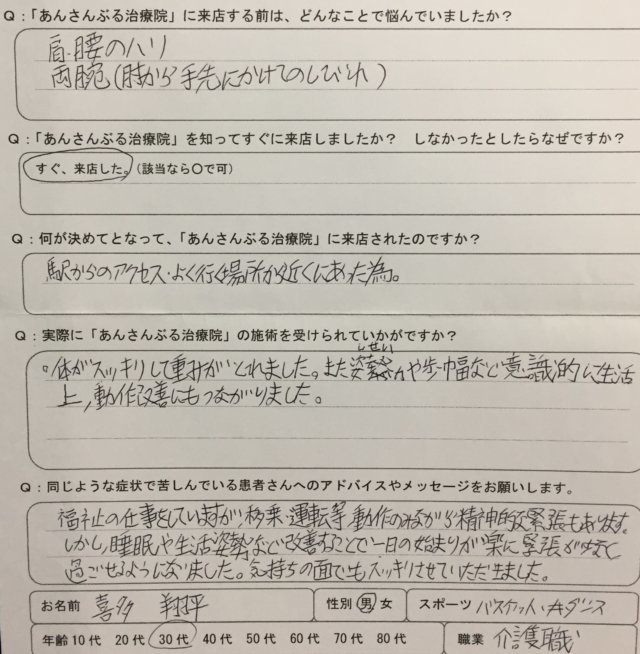 Q:「あんさんぶる治療院」に来店する前は、どんなことで悩んでいましたか?
肩・腰のハリ
両腕(肘から手先にかけてのしびれ)
Q:「あんさんぶる治療院」を知ってすぐに来店しましたか? しなかったとしたらなぜですか?
すぐ、来店した。(該当なら〇で可)
Q:何が決めてとなって、「あんさんぶる治療院」に来店されたのですか?
駅からのアクセス・よく行く場所が近くにあった為。
Q:実際に「あんさんぶる治療院」の施術を受けられていかがですか?
。体がスッキリして重みがとれました。また姿勢や歩幅など意識的に生活
しせい
上、動作改善にもつながりました。
Q:同じような症状で苦しんでいる患者さんへのアドバイスやメッセージをお願いします。
福祉の仕事をしていますが、移乗・運転等動作のみながら精神的緊張もあります。
しかし、睡眠や生活姿勢など改善することで一日の始まりが楽に緊張がなく
過ごせるようになりました。気持ちの面でもスッキリさせていただきました。
お名前 喜多 翔平 性別 男 女 スポーツ バスケット・
年齢 10代 20代 30代 40代 50代 60代 70代 80代 職業 介護職